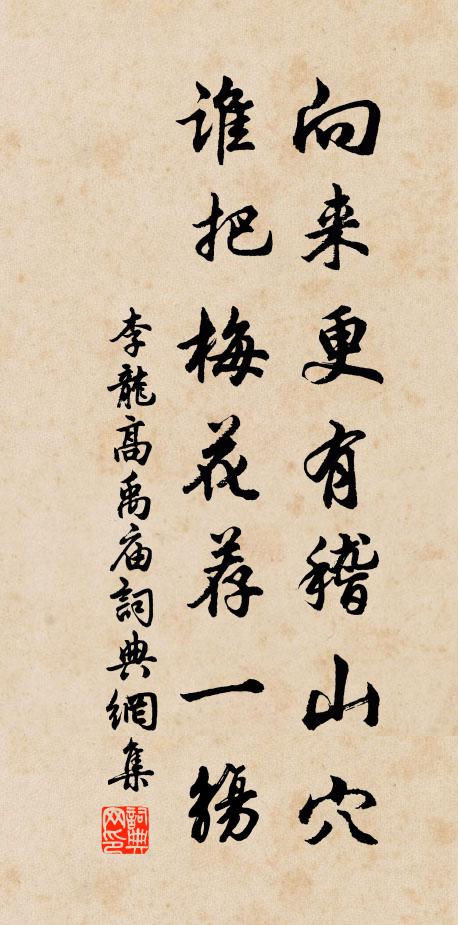 向来更有稽山穴
谁把梅花荐一觞
李龍高禹庙詞典網集
詞典網印